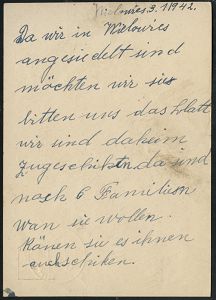 Milowies 3.1 1942.
Da wir in Milowies
angesiedelt sind
möchten wir sie
bitten uns das blatt
wir sind daheim
zugeschikten. da sind
noch 6 Familien
Wan sie wollen.
Könen sie es ihnen
auchschiken.